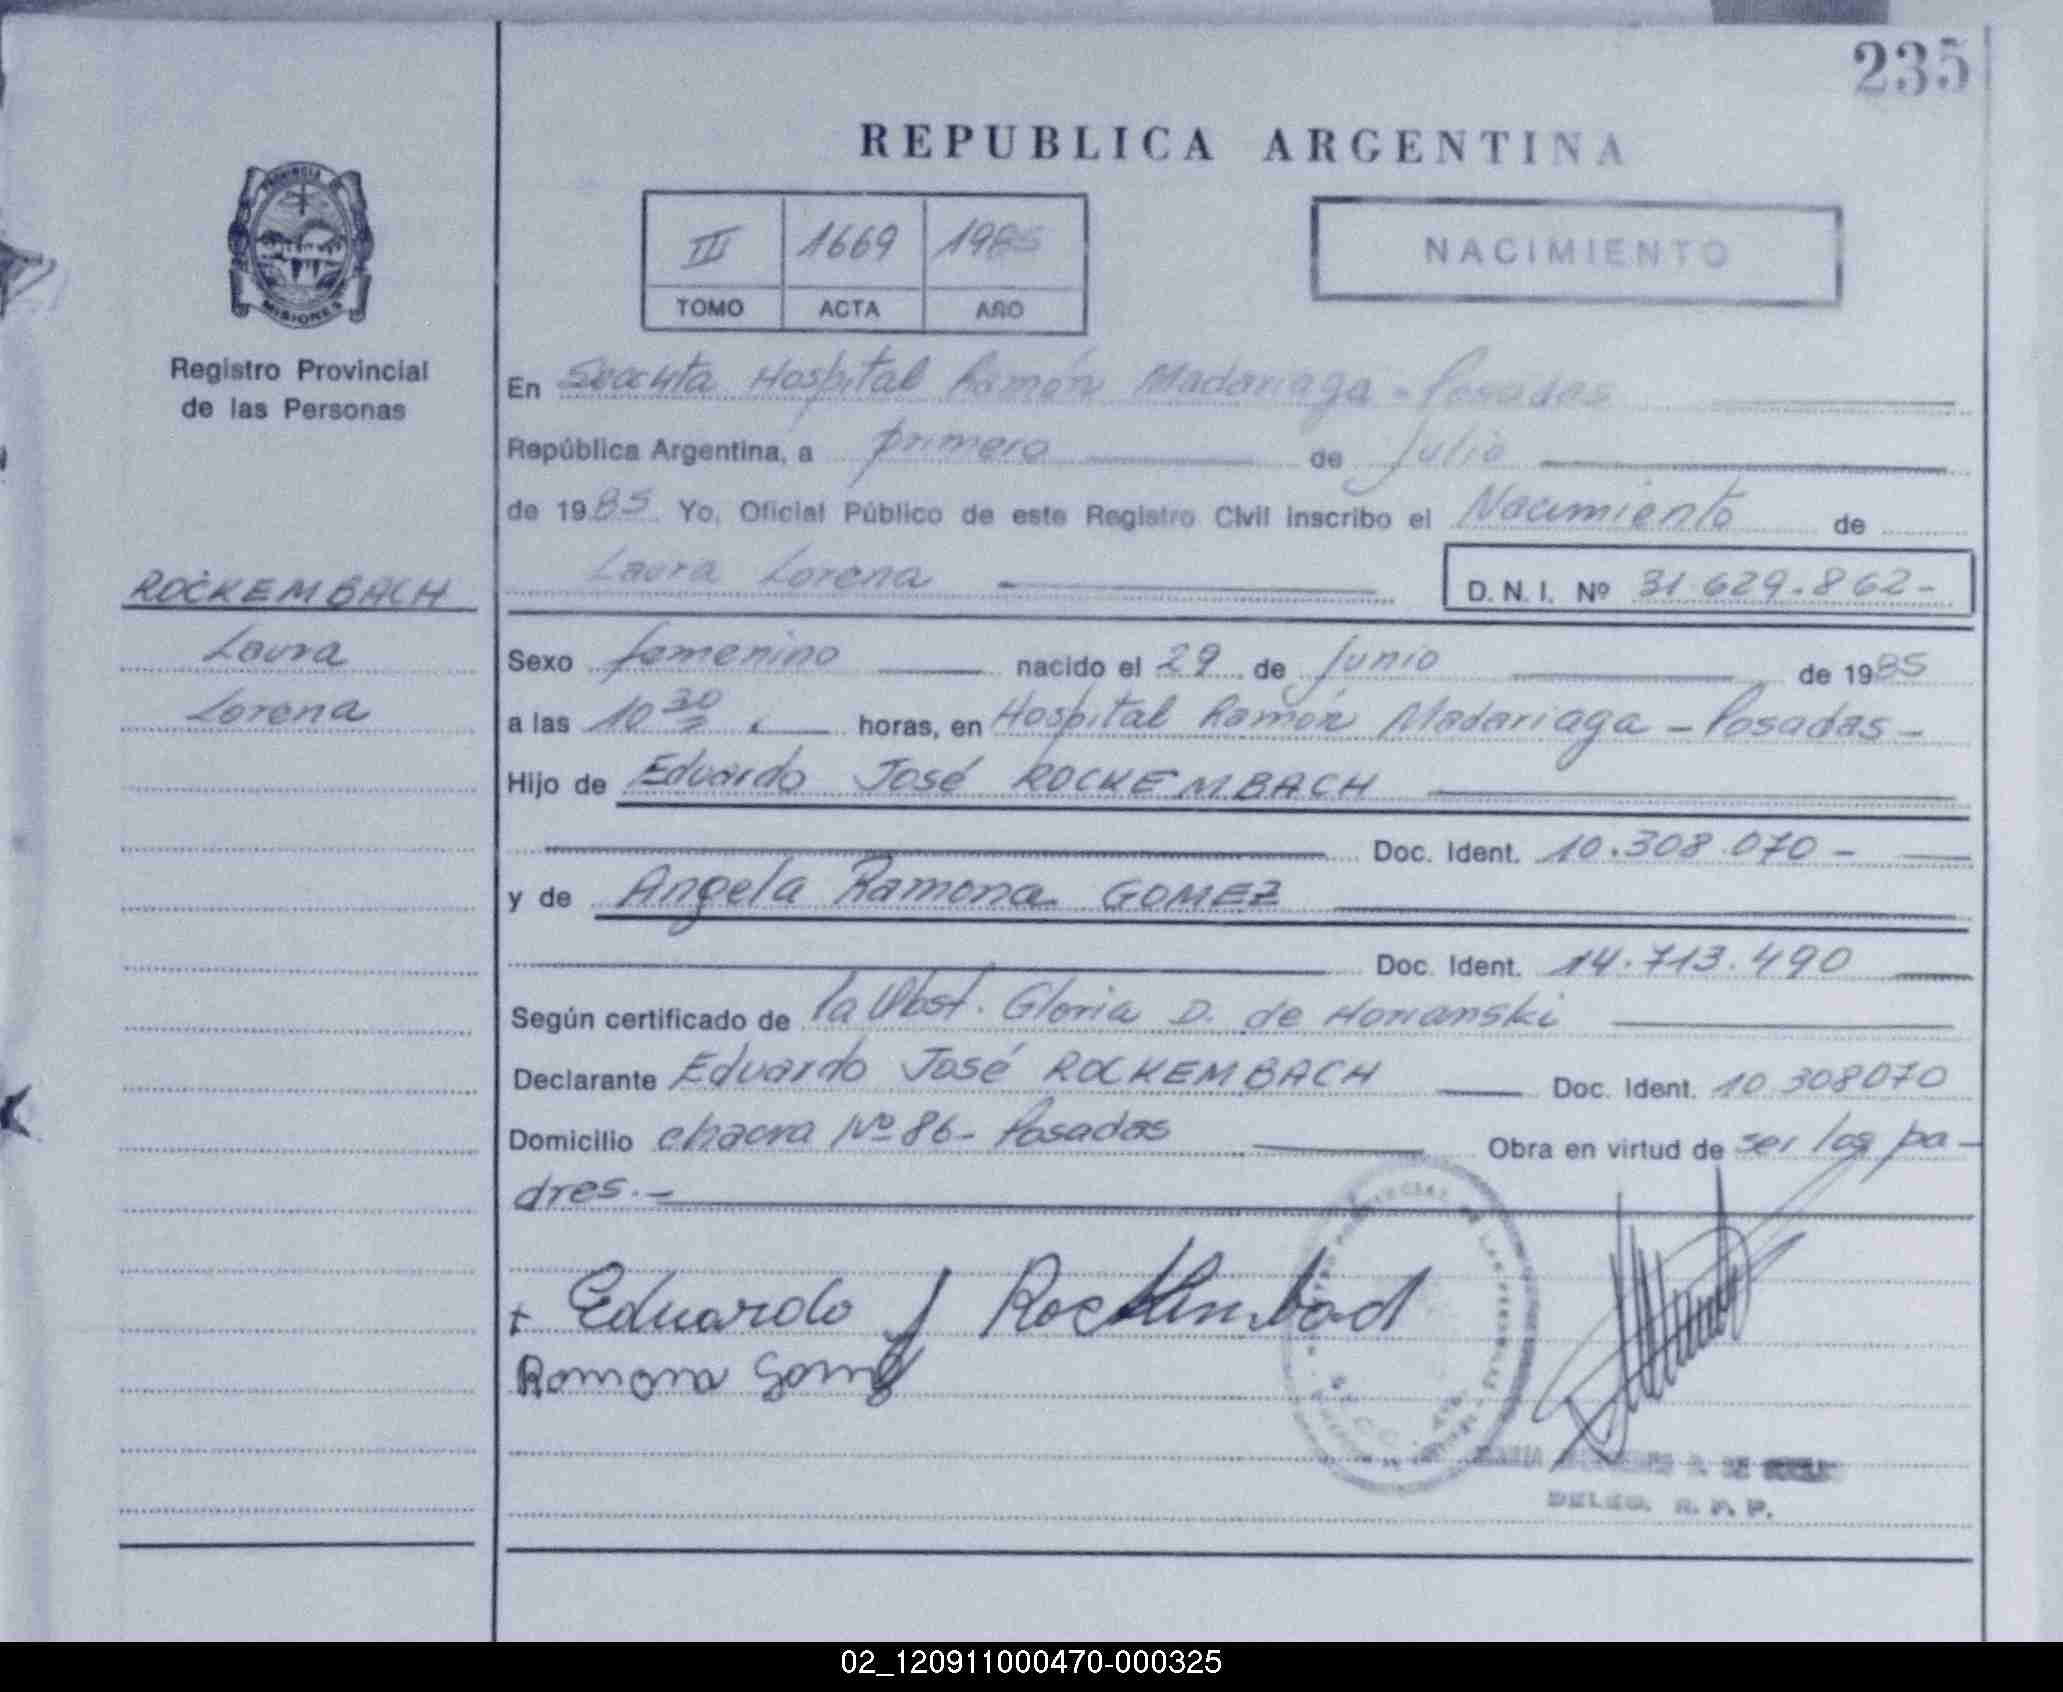 235
REPUBLICA ARGENTINA
III 1669 1985
TOMO ACTA AÑO
NACIMIENTO
PROVINCIA DE
MISIONES
Registro Provincial
de las Personas
En Hospital Ramón Madariaga - Posadas
República Argentina, a primero de Julio
de 1985 Yo, Oficial Público de este Registro Civil inscribo el Nacimiento de
Laura Lorena D. N. I. Nº 31.629.862-
ROCKEMBACH
Laura
Lorena
Sexo femenino nacido el 29 de Junio de 1985
a las 10 30 horas, en Hospital Ramón Madariaga - Posadas -
Hijo de Eduardo José ROCKEMBACH
Doc. Ident. 10.308.070 -
y de Angela Ramona GOMEZ
Doc. Ident. 14.713.490
Según certificado de la Obst. Gloria D. de
Declarante Eduardo José ROCKEMBACH Doc. Ident. 10.308070
Domicilio chacra Nº 86 - Posadas Obra en virtud de ser los pa-
dres.-
Eduardo J
Ramona Gomez
DELEG. R. P. P.
02_120911000470-000325